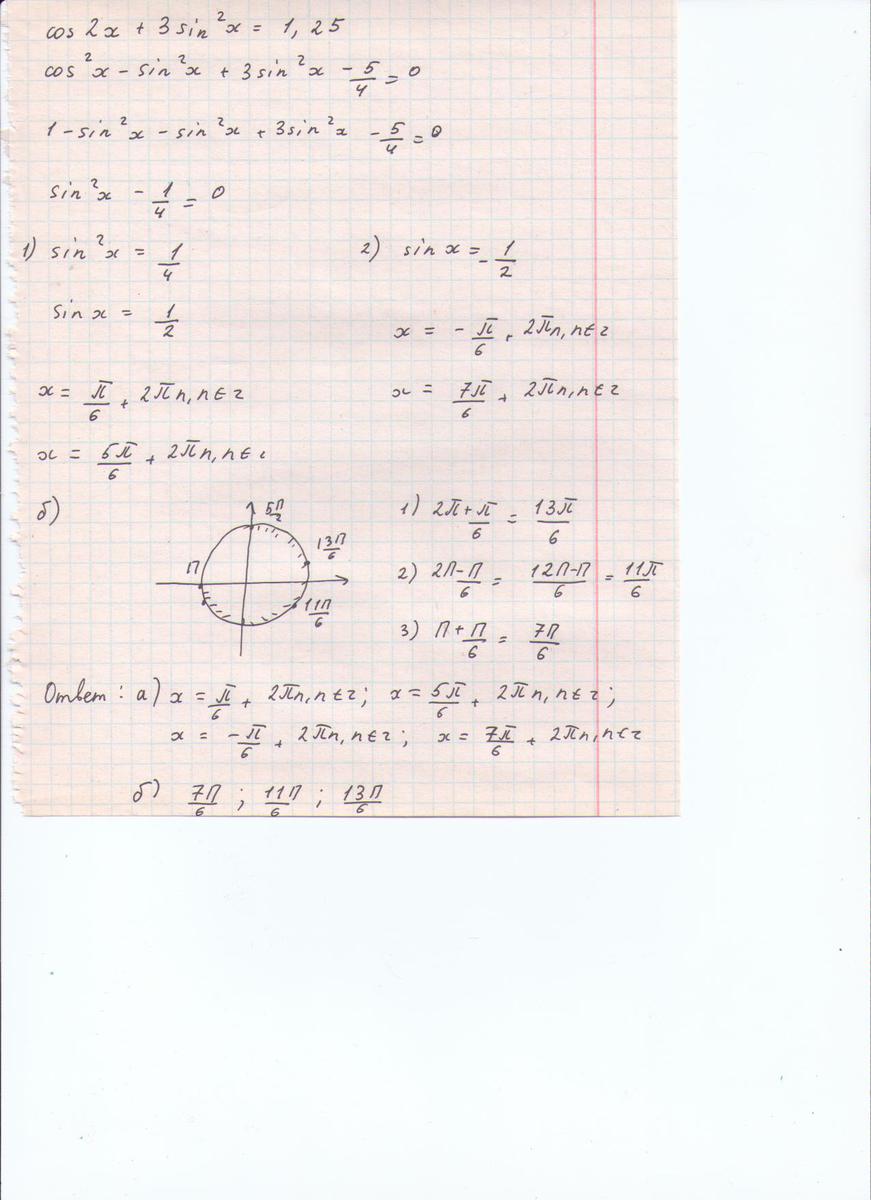 cos 2x + 3 sin²x = 1,25
cos²x - sin²x + 3 sin²x - 5/4 = 0
1 - sin²x - sin²x + 3sin²x - 5/4 = 0
sin²x - 1/4 = 0
1) sin²x = 1/4
sin x = 1/2
x = π/6 + 2πn, n ∈ z
x = 5π/6 + 2πn, n ∈ z
2) sin x = -1/2
x = -π/6 + 2πn, n ∈ z
x = 7π/6 + 2πn, n ∈ z
б)
5π/2
13π/6
π
11π/6
1) 2π + π/6 = 13π/6
2) 2π - π/6 = 12π-π/6 = 11π/6
3) π + π/6 = 7π/6
Ответ: а) x = π/6 + 2πn, n ∈ z; x = 5π/6 + 2πn, n ∈ z;
x = -π/6 + 2πn, n ∈ z; x = 7π/6 + 2πn, n ∈ z
б) 7π/6 ; 11π/6 ; 13π/6